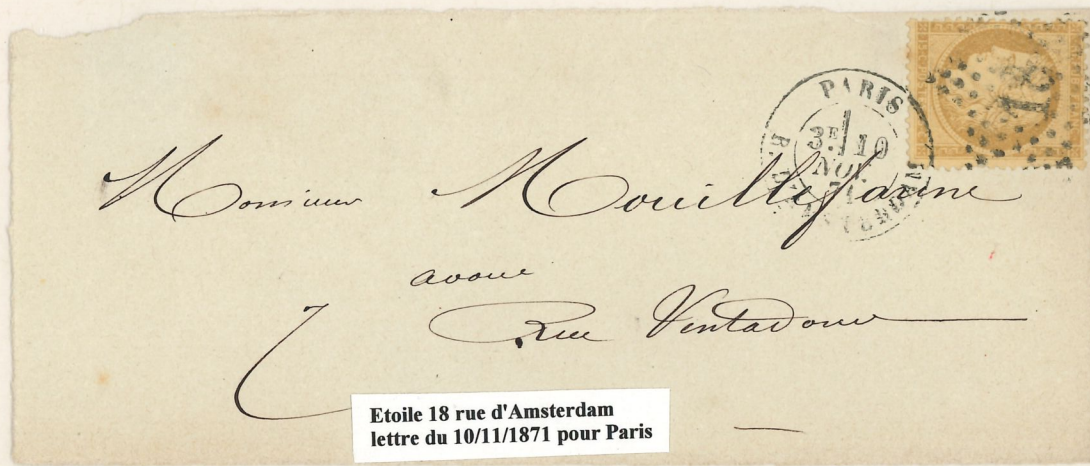 PARIS
3E 10
NOV.
71
R. D'AMSTERDAM
Monsieur Mouillefarine
avoué
7 Rue Ventadour
Etoile 18 rue d'Amsterdam
lettre du 10/11/1871 pour Paris